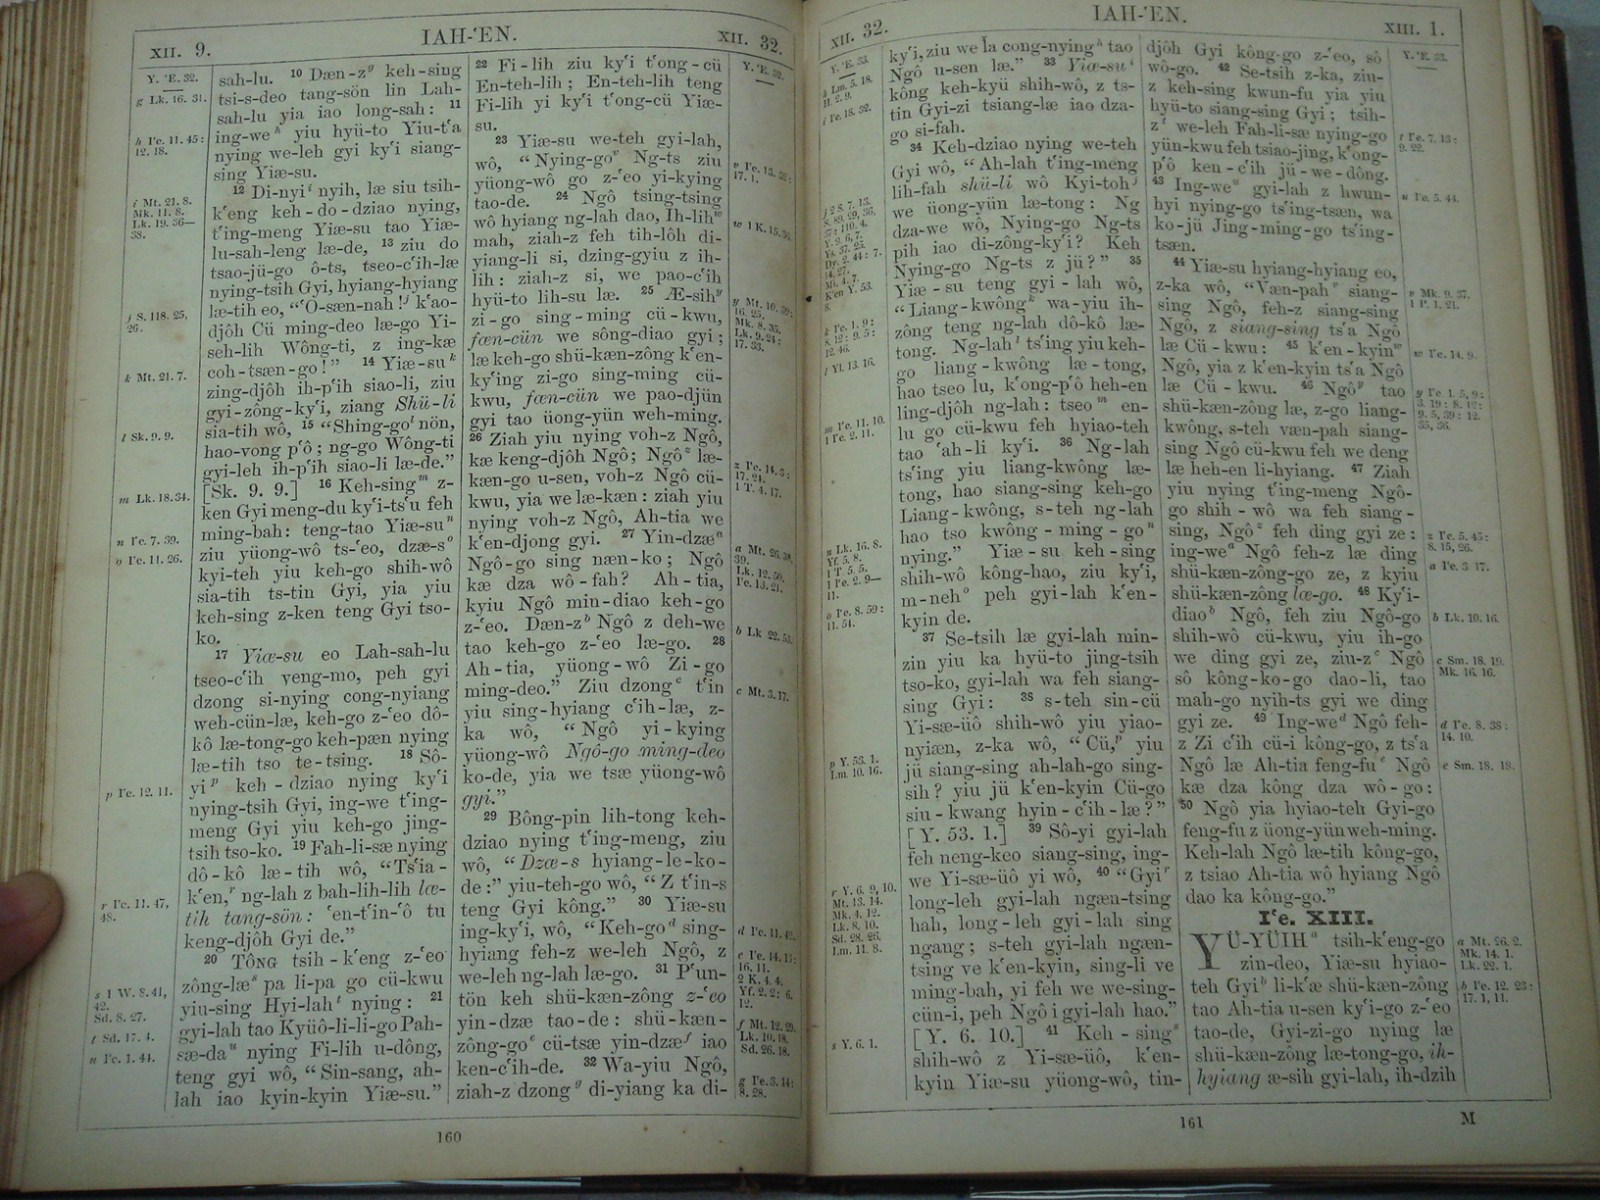 XII. 9.
IAH-ʻEN.
XII. 32.
Y. ʻE. 32.
g Lk. 16. 31.
h Iʻe. 11. 45:
12. 18.
i Mt. 21. 8.
Mk. 11. 8.
Lk. 19. 36—
38.
j S. 118. 25,
26.
k Mt. 21. 7.
l Sk. 9. 9.
m Lk. 18. 34.
n Iʻe. 7. 39.
o Iʻe. 14. 26.
p Iʻe. 12. 11.
r Iʻe. 11. 47,
48.
s 1 W. 8. 41,
42.
Sd. 8. 27.
t Sd. 17. 4.
u Iʻe. 1. 44.
sah-lu. 10 Dæn-z g keh-sing
tsi-s-deo tang-sön lin Lah-
sah-lu yia iao long-sah: 11
ing-we h yiu hyü-to Yiu-tʻa
nying we-leh gyi kyʻi siang-
sing Yiæ-su.
12 Di-nyi i nyih, læ siu tsih-
kʻeng keh-do-dziao nying,
tʻing-meng Yiæ-su tao Yiæ-
lu-sah-leng læ-de, 13 ziu do
tsao-jü-go ô-ts, tseo-cʻih-læ
nying-tsih Gyi, hyiang-hyiang
læ-tih eo, “ʻO-sæn-nah! j kʻao-
djôh Cü ming-deo læ-go Yi-
seh-lih Wông-ti, z ing-kæ
coh-tsæn-go!” 14 Yiæ-su k
zing-djôh ih-pʻih siao-li, ziu
gyi-zông-kyʻi, ziang Shü-li
sia-tih wô, 15 “Shing-go l nön,
hao-vong pʻô; ng-go Wông-ti
gyi-leh ih-pʻih siao-li læ-de.”
[Sk. 9. 9.] 16 Keh-sing m z-
ken Gyi meng-du kyʻi-tsʻu feh
ming-bah: teng-tao Yiæ-su n
ziu yüong-wô ts-ʻeo, dzæ-s o
kyi-teh yiu keh-go shih-wô
sia-tih ts-tin Gyi, yia yiu
keh-sing z-ken teng Gyi tso-
ko.
17 Yiæ-su eo Lah-sah-lu
tseo-cʻih veng-mo, peh gyi
dzong si-nying cong-nyiang
weh-cün-læ, keh-go z-ʻeo dô-
kô læ-tong-go keh-pæn nying
læ-tih tso te-tsing. 18 Sô-
yi p keh-dziao nying kyʻi
nying-tsih Gyi, ing-we tʻing-
meng Gyi yiu keh-go jing-
tsih tso-ko. 19 Fah-li-sæ nying
dô-kô læ-tih wô, “Tsʻia-
kʻen, r ng-lah z bah-lih-lih læ-
tih tang-sön: ʻen-tʻin-ʻô tu
keng-djôh Gyi de.”
20 Tông tsih-kʻeng z-ʻeo
zông-læ s pa li-pa go cü-kwu
yiu-sing Hyi-lah t nying: 21
gyi-lah tao Kyüô-li-li-go Pah-
sæ-da u nying Fi-lih u-dông,
teng gyi wô, “Sin-sang, ah-
lah iao kyin-kyin Yiæ-su.”
22 Fi-lih ziu kyʻi tʻong-cü
En-teh-lih; En-teh-lih teng
Fi-lih yi kyʻi tʻong-cü Yiæ-
su.
23 Yiæ-su we-teh gyi-lah,
wô, “Nying-go v Ng-ts ziu
yüong-wô go z-ʻeo yi-kying
tao-de. 24 Ngô tsing-tsing
wô hyiang ng-lah dao, Ih-lih w
mah, ziah-z feh tih-lôh di-
yiang-li si, dzing-gyiu z ih-
lih: ziah-z si, we pao-cʻih
hyü-to lih-su læ. 25 Æ-sih y
zi-go sing-ming cü-kwu,
fæn-cün we sông-diao gyi;
læ keh-go shü-kæn-zông kʻen-
kyʻing zi-go sing-ming cü-
kwu, fæn-cün we pao-djün
gyi tao üong-yün weh-ming.
26 Ziah yiu nying voh-z Ngô,
kæ keng-djôh Ngô; Ngô z læ-
kæn-go u-sen, voh-z Ngô cü-
kwu, yia we læ-kæn: ziah yiu
nying voh-z Ngô, Ah-tia we
kʻen-djong gyi. 27 Yin-dzæ a
Ngô-go sing næn-ko; Ngô
kæ dza wô-fah? Ah-tia,
kyiu Ngô min-diao keh-go
z-ʻeo. Dæn-z b Ngô z deh-we
tao keh-go z-ʻeo læ-go. 28
Ah-tia, yüong-wô Zi-go
ming-deo.” Ziu dzong c tʻin
yiu sing-hyiang cʻih-læ, z-
ka wô, “Ngô yi-kying
yüong-wô Ngô-go ming-deo
ko-de, yia we tsæ yüong-wô
gyi.”
29 Bông-pin lih-tong keh-
dziao nying tʻing-meng, ziu
wô, “Dzæ-s hyiang-le-ko-
de:” yiu-teh-go wô, “Z tʻin-s
teng Gyi kông.” 30 Yiæ-su
ing-kyʻi, wô, “Keh-go d sing-
hyiang feh-z we-leh Ngô, z
we-leh ng-lah læ-go. 31 Pʻun-
tön keh shü-kæn-zông z-ʻeo
yin-dzæ tao-de: shü-kæn-
zông-go e cü-tsæ yin-dzæ f iao
ken-cʻih-de. 32 Wa-yiu Ngô,
ziah-z dzong g di-yiang ka di-
Y. ʻE. 32.
v Iʻe. 13. 32:
17. 1.
w 1 K. 15. 36.
y Mt. 10. 39:
16. 25.
Mk. 8. 35.
Lk. 9. 24:
17. 33.
z Iʻe. 14. 3:
17. 24.
1 T. 4. 17.
a Mt. 26. 38,
39.
Lk. 12. 50.
Iʻe. 13. 21.
b Lk. 22. 53.
c Mt. 3. 17.
d Iʻe. 11. 42.
e Iʻe. 14. 15:
16. 11.
2 K. 4. 4.
Yf. 2. 2: 6.
12.
f Mt. 12. 29.
Lk. 10. 18.
Sd. 26. 18.
g Iʻe. 3. 14:
8. 28.
160
XII. 32.
IAH-ʻEN.
XIII. 1.
Y. ʻE. 33.
h Lm. 5. 18.
H. 2. 9.
i Iʻe. 18. 32.
j 2 S. 7. 13.
S. 89. 29, 36,
37: 110. 4.
Y. 9. 6, 7.
Ys. 37. 25.
Dy. 2. 44: 7.
14, 27.
Mi. 4. 7.
Kʻen Y. 53.
8.
k Iʻe. 1. 9:
8. 12: 9. 5:
12. 46.
l Yl. 13. 16.
m Iʻe. 11. 10.
1 Iʻe. 2. 11.
n Lk. 16. 8.
Yf. 5. 8.
1 T. 5. 5.
1 Iʻe. 2. 9—
11.
o Iʻe. 8. 59:
11. 54.
p Y. 53. 1.
Lm. 10. 16.
r Y. 6. 9, 10.
Mt. 13. 14.
Mk. 4. 12.
Lk. 8. 10.
Sd. 28. 26.
Lm. 11. 8.
s Y. 6. 1.
kyʻi, ziu we la cong-nying h tao
Ngô u-sen læ.” 33 Yiæ-su i
kông keh-kyü shih-wô, z ts-
tin Gyi-zi tsiang-læ iao dza-
go si-fah.
34 Keh-dziao nying we-teh
Gyi wô, “Ah-lah tʻing-meng
lih-fah shü-li wô Kyi-toh j
we üong-yün læ-tong: Ng
dza-we wô, Nying-go Ng-ts
pih iao di-zông-kyʻi? Keh
Nying-go Ng-ts z jü?” 35
Yiæ-su teng gyi-lah wô,
“Liang-kwông k wa-yiu ih-
zông teng ng-lah dô-kô læ-
tong. Ng-lah l tsʻing yiu keh-
go liang-kwông læ-tong,
hao tseo lu, kʻong-pʻô heh-en
ling-djôh ng-lah: tseo m en-
lu go cü-kwu feh hyiao-teh
tao ʻah-li kyʻi. 36 Ng-lah
tsʻing yiu liang-kwông læ-
tong, hao siang-sing keh-go
Liang-kwông, s-teh ng-lah
hao tso kwông-ming-go n
nying.” Yiæ-su keh-sing
shih-wô kông-hao, ziu kyʻi,
m-neh o peh gyi-lah kʻen-
kyin de.
37 Se-tsih læ gyi-lah min-
zin yiu ka hyü-to jing-tsih
tso-ko, gyi-lah wa feh siang-
sing Gyi: 38 s-teh sin-cü
Yi-sæ-üô shih-wô yiu yiao-
nyiæn, z-ka wô, “Cü, p yiu
jü siang-sing ah-lah-go sing-
sih? yiu jü kʻen-kyin Cü-go
siu-kwang hyin-cʻih-læ?”
[Y. 53. 1.] 39 Sô-yi gyi-lah
feh neng-keo siang-sing, ing-
we Yi-sæ-üô yi wô, 40 “Gyi r
long-leh gyi-lah ngæn-tsing
hah, long-leh gyi-lah sing
ngang; s-teh gyi-lah ngæn-
tsing ve kʻen-kyin, sing-li ve
ming-bah, yi feh we we-sing-
cün-i, peh Ngô i gyi-lah hao.”
[Y. 6. 10.] 41 Keh-sing s
shih-wô z Yi-sæ-üô, kʻen-
kyin Yiæ-su yüong-wô, tin-
djôh Gyi kông-go z-ʻeo, sô
wô-go. 42 Se-tsih z-ka, ziu-
z keh-sing kwun-fu yia yiu
hyü-to siang-sing Gyi; tsih-
z t we-leh Fah-li-sæ nying-go
yün-kwu feh tsiao-jing, kʻong-
pʻô ken-cʻih jü-we-dông.
43 Ing-we u gyi-lah z hwun-
hyi nying-go tsʻing-tsæn, wa
ko-jü Jing-ming-go tsʻing-
tsæn.
44 Yiæ-su hyiang-hyiang eo,
z-ka wô, “Væn-pah v siang-
sing Ngô, feh-z siang-sing
Ngô, z siang-sing tsʻa Ngô
læ Cü-kwu: 45 kʻen-kyin w
Ngô, yia z kʻen-kyin tsʻa Ngô
læ Cü-kwu. 46 Ngô y tao
shü-kæn-zông læ, z-go liang-
kwông, s-teh væn-pah siang-
sing Ngô cü-kwu feh we deng
læ heh-en li-hyiang. 47 Ziah
yiu nying tʻing-meng Ngô-
go shih-wô wa feh siang-
sing, Ngô z feh ding gyi ze:
ing-we a Ngô feh-z læ ding
shü-kæn-zông-go ze, z kyiu
shü-kæn-zông læ-go. 48 Kyʻi-
diao b Ngô, feh ziu Ngô-go
shih-wô cü-kwu, yiu ih-go
we ding gyi ze, ziu-z c Ngô
sô kông-ko-go dao-li, tao
mah-go nyih-ts gyi we ding
gyi ze. 49 Ing-we d Ngô feh-
z Zi cʻih cü-i kông-go, z tsʻa
Ngô læ Ah-tia feng-fu e Ngô
kæ dza kông dza wô-go:
50 Ngô yia hyiao-teh Gyi-go
feng-fu z üong-yün weh-ming.
Keh-lah Ngô læ-tih kông-go,
z tsiao Ah-tia wô hyiang Ngô
dao ka kông-go.”
Iʻe. XIII.
YÜ-YÜIH a tsih-kʻeng-go
zin-deo, Yiæ-su hyiao-
teh Gyi b li-kʻæ shü-kæn-zông
tao Ah-tia u-sen kyʻi-go z-ʻeo
tao-de, Gyi-zi-go nying læ
shü-kæn-zông læ-tong-go, ih-
hyiang æ-sih gyi-lah, ih-dzih
Y. ʻE. 33.
t Iʻe. 7. 13:
9. 22.
u Iʻe. 5. 44.
v Mk. 9. 37.
1 P. 1. 21.
w Iʻe. 14. 9.
y Iʻe. 1. 5, 9:
3. 19: 8. 12:
9. 5, 39: 12.
35, 36.
z Iʻe. 5. 45:
8. 15, 26.
a Iʻe. 3. 17.
b Lk. 10. 16.
c Sm. 18. 19.
Mk. 16. 16.
d Iʻe. 8. 38:
14. 10.
e Sm. 18. 18.
a Mt. 26. 2.
Mk. 14. 1.
Lk. 22. 1.
b Iʻe. 12. 23:
17. 1, 11.
161
M